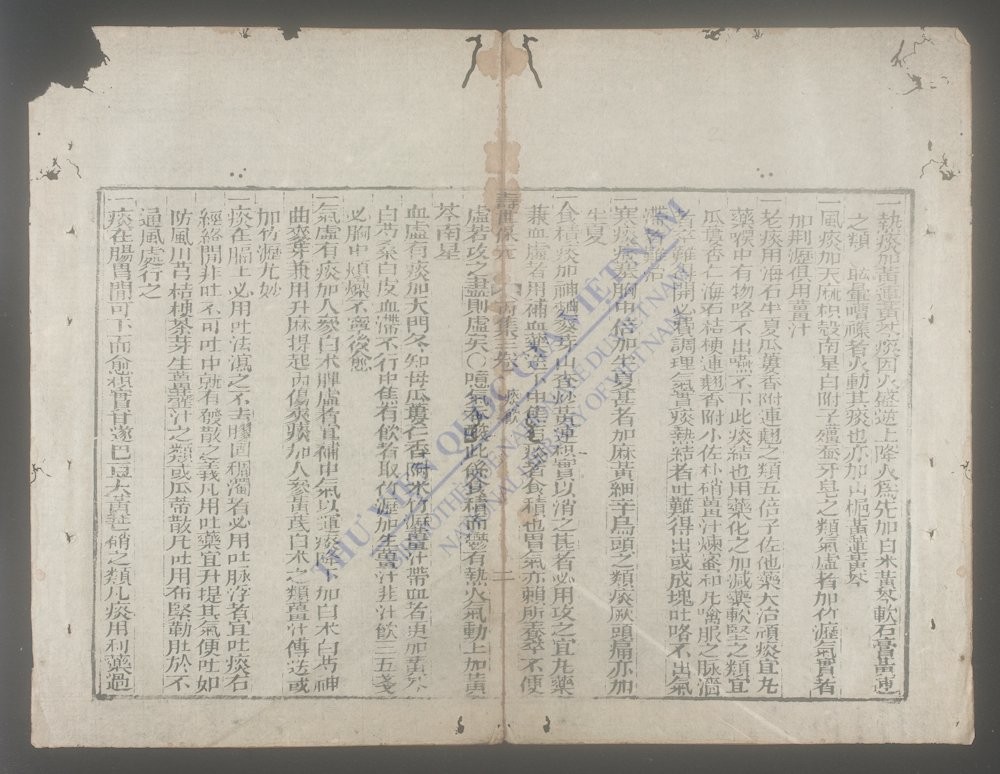 一熱痰加黃連黃芩痰因火盛逆上降火爲先加白朮黃芩軟石膏黃連
之類 眩暈嘈雜者火動其痰也亦加山梔黃連黃芩
一風痰加天麻枳殼南星白附子殭蚕牙皂之類氣虛者加竹瀝氣實者
加荆瀝俱用薑汁
一老痰用海石半夏瓜蔞香附連翹之類五倍子佐他藥大治頑痰宜丸
藥喉中有物咯不出嚥不下此痰結也用藥化之加減藥軟堅之類宜
瓜蔞杏仁海石桔梗連翹香附小佐朴硝薑汁煉蜜和丸噙服之脉濇
者卒難得開必費調理氣實痰熱結者吐難得出或成塊吐咯不出氣
滯者難治
一寒痰痞塞胸中倍加半夏甚者加麻黃細辛烏頭之類痰厥頭痛亦加
半夏
一食積痰加神麯麥芽山查炒黃連枳實以消之甚者必用攻之宜丸藥
兼血虛者用補血藥送下中焦有痰者食積也胃氣亦賴所養卒不便
虛若攻之盡則虛矣〇噫氣吞酸此係食積而鬱有熱火氣動上加黃
芩南星
血虛有痰加天門冬知母瓜蔞仁香附米竹瀝薑汁帶血者更加黃芩
白芍桑白皮血滯不行中焦有飲者取竹瀝加生薑汁韭汁飲三五盞
必胸中煩燥不寧後愈
一氣虛有痰加人參白朮脾虛者宜補中氣以運痰降下加白朮白芍神
曲麥芽兼用升麻提起內傷挾痰加人參黃芪白朮之類薑汁傳送或
加竹瀝尤妙
一痰在膈上必用吐法瀉之不去膠固稠濁者必用吐脉浮者宜吐痰在
經絡間非吐不可吐中就有發散之義凡用吐藥宜升提其氣便吐如
防風川芎桔梗茶芽生薑韲汁之類或瓜蒂散凡吐用布緊勒肚於不
通風處行之
一痰在腸胃間可下而愈枳實甘遂巴豆大黃芒硝之類凡痰用利藥過
壽世保元 丙集三卷 痰飲 二
THƯ VIỆN QUỐC GIA VIỆT NAM
BIBLIOTHÈQUE NATIONALE DU VIETNAM
NATIONAL LIBRARY OF VIETNAM